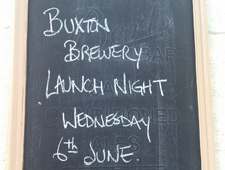 BUXTON
BREWERY
LAUNCH NIGHT
WEDNESDAY
6th JUNE.